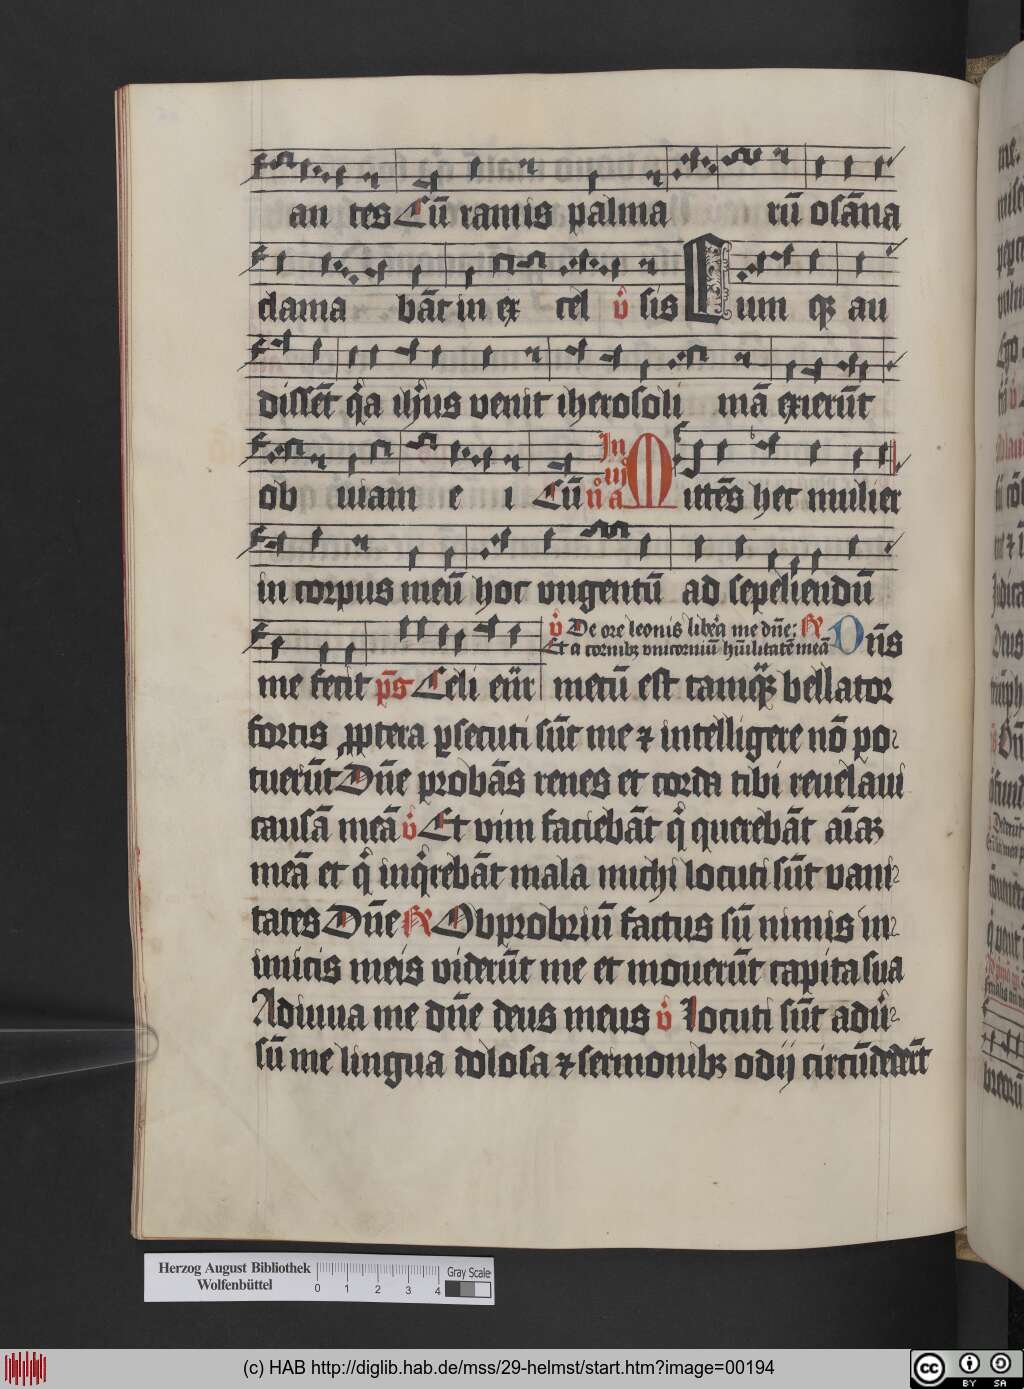 an tes Cū ramis palma rū osāna
clama bāt in ex cel v̊ sis Cum qꝫ au
dissēt q̊a ih̊us venit iherosoli mā exierūt
ob uiam e i Cū In iij n̊ a Mittēs hec mulier
in corpus meū hoc vngentū ad sepeliendū
v̊ De ore leonis libe̊a me dn̄e: ℟
Et a cornibꝫ vnicorniū hūilitatē meā Dn̄s
me fecit pš Celi eūr mecū est tamqꝫ bellator
fortis ꝓptera ꝑsecuti sūt me ⁊ intelligere nō po⸗
tuerūt Dn̄e probās renes et corda tibi reuelaui
causā meā v̊ Et vim faciebāt q̊ querebāt aīaꝫ
meā et q̊ inq̊rebāt mala michi locuti sūt vani⸗
tates Dn̄e ℟ Obprobriū factus sū nimis in⸗
imicis meis viderūt me et mouerūt capita sua
Adiuua me dn̄e deus meus v̊ Locuti sūt adů⸗
sū me lingua dolosa ⁊ sermonibꝫ odij circūdederūt
Herzog August Bibliothek
Wolfenbüttel
0 1 2 3 4
Gray Scale
(c) HAB http://diglib.hab.de/mss/29-helmst/start.htm?image=00194
cc BY SA